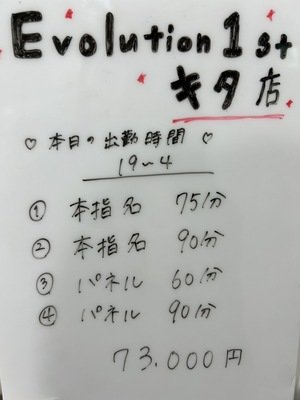 Evolution 1st
キタ店
♡ 本日の出勤時間 ♡
19〜4
① 本指名 75分
② 本指名 90分
③ パネル 60分
④ パネル 90分
73.000円